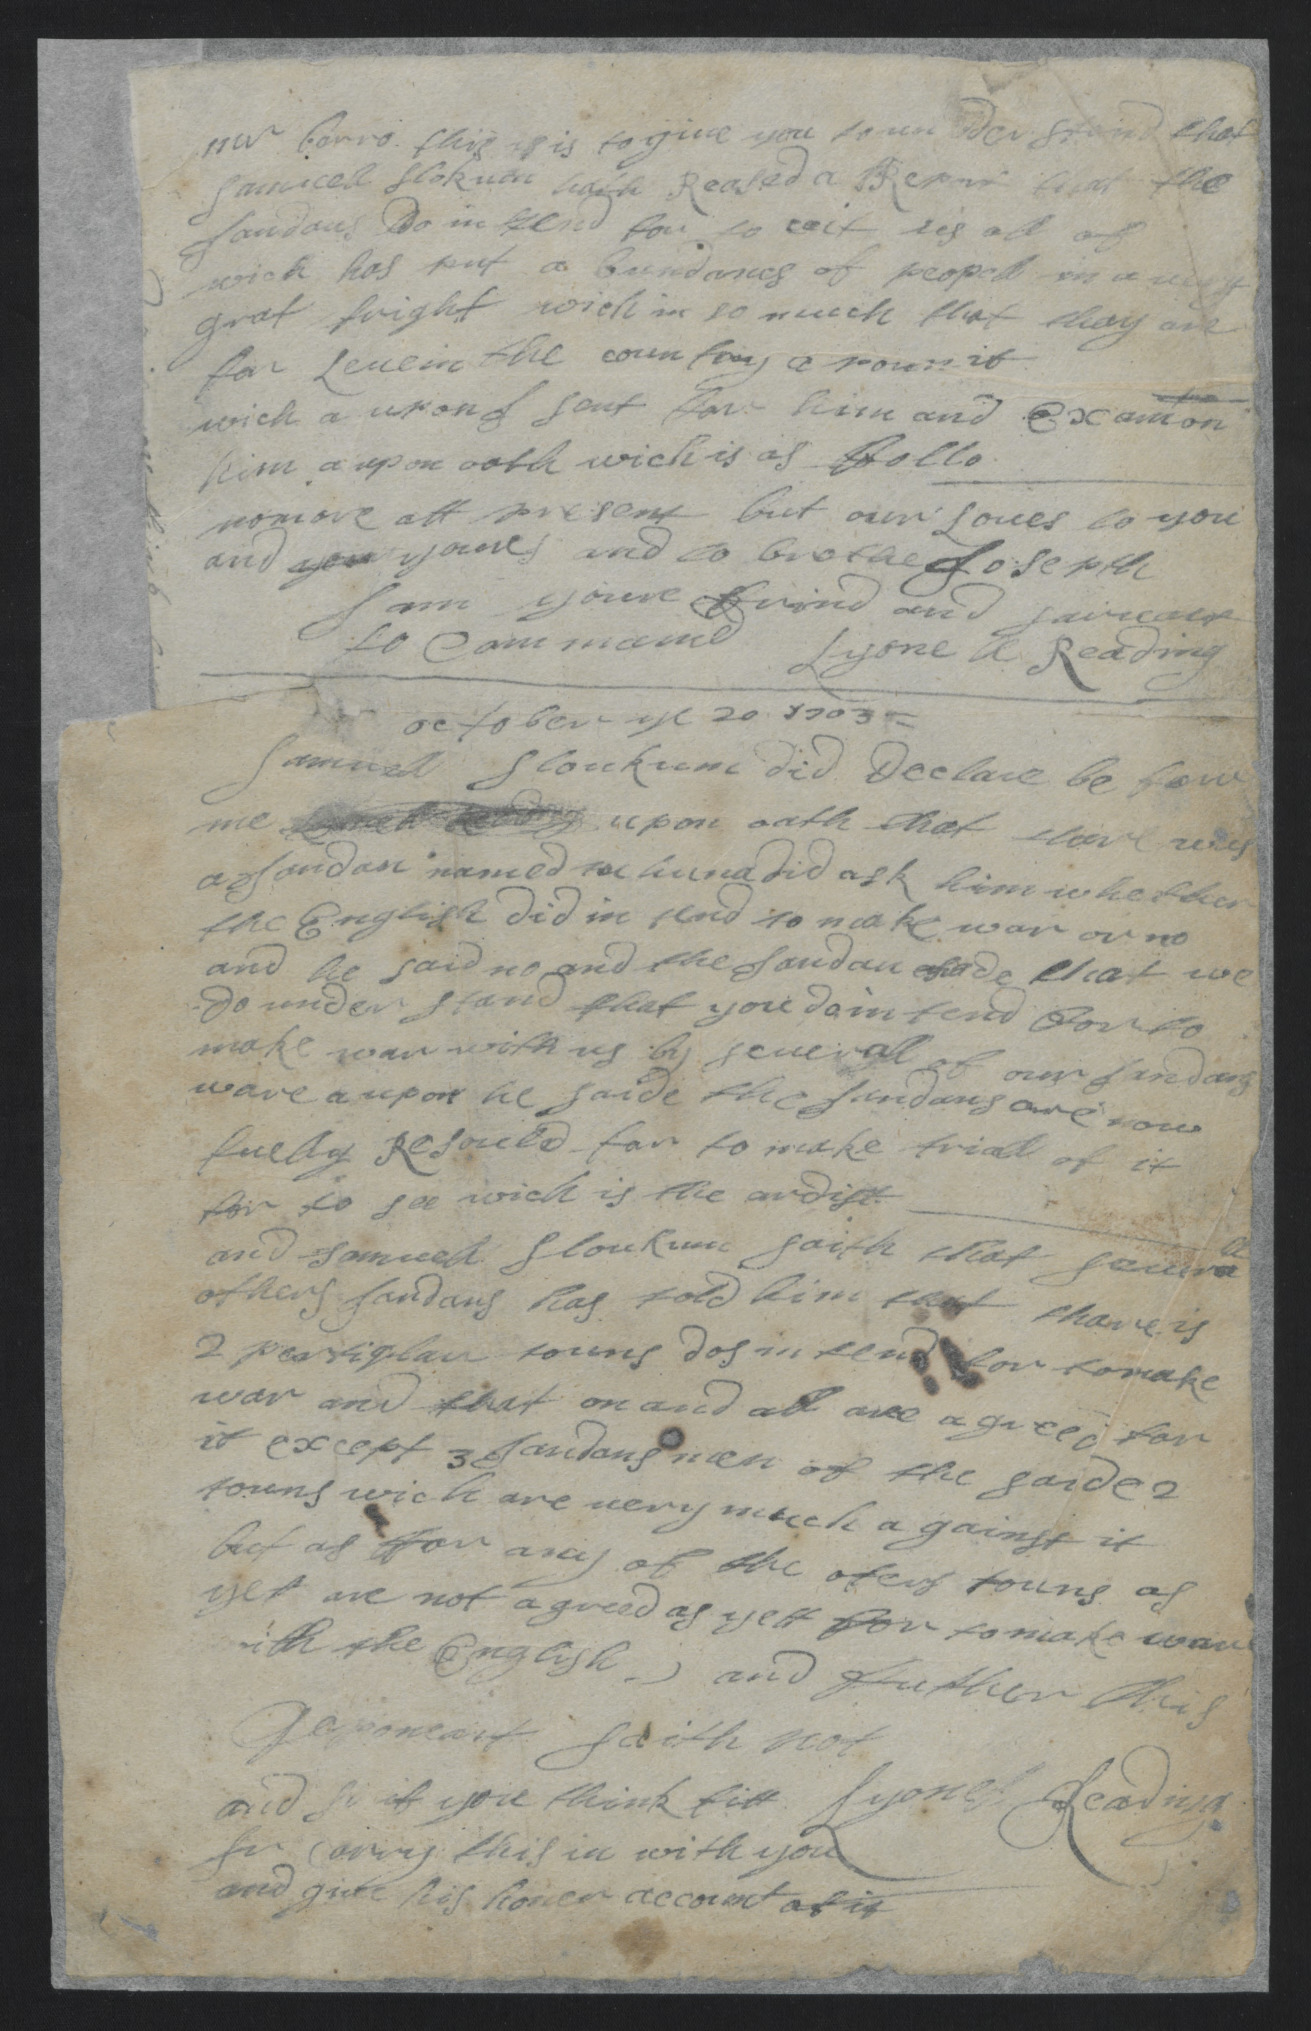 mr barro this is is to giue you to un der stand that
Samuell Slokum hath Reased a Repor that the
Jandans Do in tend for to cut us all of
wich has put a bundanes of peopell in a uery
grat fright wich in so much that thay are
for Leuein the coun tray a roun it
wich a upon J sent for him and Examon
him a upon oath wich is as ffollo
nomore att present but our Loues to you
and you youres and to brothe Joseph
J am youre ffrind and saruant
to Command Lyone ll Reading
october ye 20 1703
Samuell Sloukum did Declare be fore
me upon oath that thare was
a Jandan named did ask him whether
the English did in tend to make war or no
and he said no and the Jandan saide that we
do under stand that you do in tend for to
make war with us by seuerall of our Jandans
ware a upon he saide the Jandans are now
fuelly Resould for to make triall of it
for to see wich is the ardist
and Samuell Sloukum saith that seuerall
others Jandans has told him that thare is
2 pertiqlar touns dos in tend for to make
war and that on and all are agreed for
it except 3 Jandans men of the saide 2
touns wich are uery much a gainst it
but as ffor any of the oters touns as
yet are not agreed as yett ffor to make warr
ith the English and ffuther this
Deponeant saith not
and sr if you think fitt Lyonel Reading
sr Carry this in with you
and giue his honer account of it